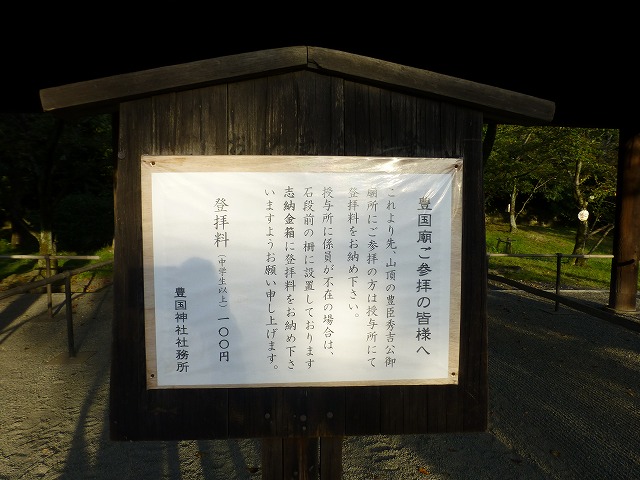 豊国廟ご参拝の皆様へ
これより先、山頂の豊臣秀吉公御
廟所にご参拝の方は授与所にて
登拝料をお納め下さい。
授与所に係員が不在の場合は、
石段前の柵に設置しております
志納金箱に登拝料をお納め下さ
いますようお願い申し上げます。
登拝料（中学生以上）一〇〇円
豊国神社社務所